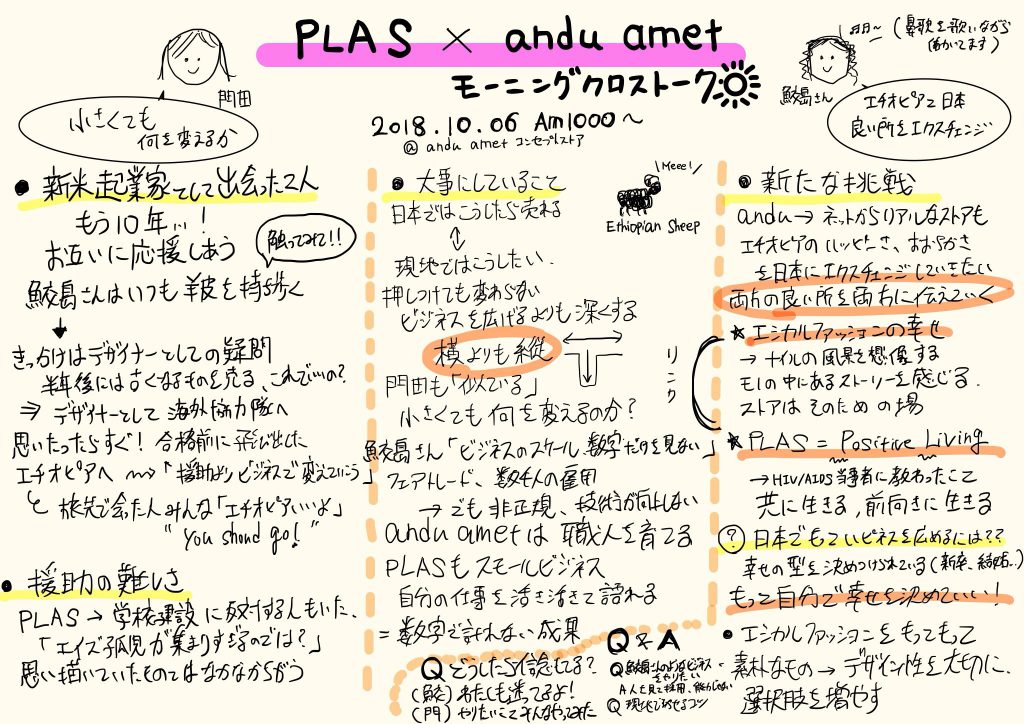 PLAS × andu amet
モーニングクロストーク
2018.10.06 Am1000〜
@ andu amet コンセプトストア
門田
小さくても
何を変えるか
鮫島さん
(鼻歌を歌いながら
描いてます)
エチオピアと日本
良い所をエクスチェンジ
● 新米起業家として出会った2人
もう10年…!
お互いに応援しあう
触ってみて!!
鮫島さんはいつも羊皮を持ち歩く
↓
きっかけはデザイナーとしての疑問
半年後には古くなるものを売る、これでいいの?
⇒ デザイナーとして 海外協力隊へ
思いたったらすぐ! 合格前に飛び出した
エチオピアへ 〰→「援助よりビジネスで変えていこう」
と 旅先で会った人みんな「エチオピアいいよ」
"You should go!"
● 援助の難しさ
PLAS → 学校建設に反対する人もいた、
「エイズ孤児が集まりすぎるのでは?」
思い描いていたものではなかなかちがう
● 大事にしていること
日本ではこうしたら売れる
↕
現地ではこうしたい.
押しつけても変わらない
ビジネスを広げるよりも深くする
横よりも縦
門田も「似ている」
小さくても何を変えるのか?
リンク
鮫島さん「ビジネスのスケール、数字だけを見ない」
フェアトレード、数千人の雇用
→ でも 非正規、技術が向上しない
andu ametは 職人を育てる
PLASもスモールビジネス
自分の仕事を活き活きと語れる
= 数字で計れない成果
Meee!
Ethiopian Sheep
Q & A
Q どうしたら信じてる?
(鮫) わたしも迷ってるよ!
(門) やりたいことそんなやってみた
Q 鮫島さんのようなビジネス
をやりたい
A 人を見て採用、能力じゃない
Q 現地で功せるコツ
● 新たな挑戦
andu→ ネットからリアルなストアも
エチオピアのハッピーさ、おおらかさ
を日本にエクスチェンジしていきたい
両方の良い所を両方に伝えていく
★ エシカルファッションの幸せ
→ ナイルの風景を想像する
モノの中にあるストーリーを感じる.
ストアはそのための場
★ PLAS = Positive Living
→ HIV/AIDS当事者に教わったこと
共に生きる, 前向きに生きる
? 日本でもていピネスを広めるには??
幸せの型を決めつけられている(新卒、結婚..)
もって自分で幸せを決めていい!
● エシカルファッションをもってもって
素朴なもの→ デザイン性を大切に.
選択肢を増やす